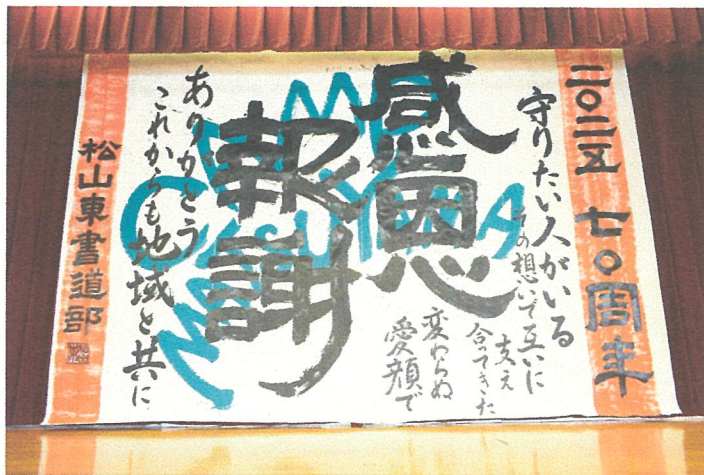 二〇二五 七〇周年
守りたい人がいる
その想いで互いに
支え
合ってきた
変わらぬ
愛顔で
感恩
報謝
ありがとう
これからも地域と共に
松山東書道部